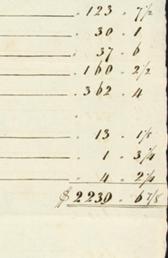 123 . 7 1/2
30 . 1
37 . 6
160 . 2 1/2
362 . 4
13 . 1 1/2
1 . 3 1/4
4 . 2 1/4
$ 2230 . 6 7/8